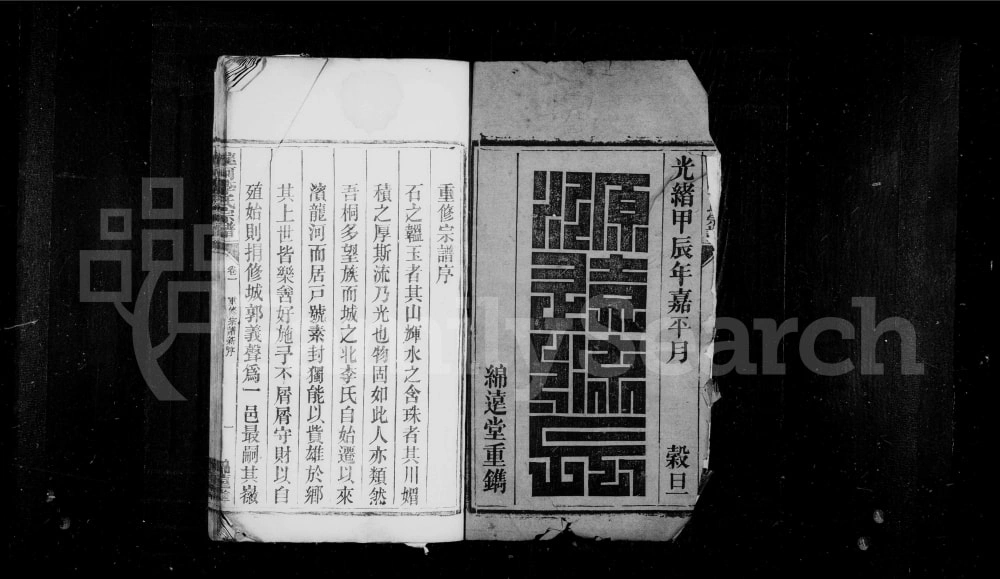 光緒甲辰年嘉平月 穀旦
綿遠堂重鐫
重修宗譜序
石之韞玉者其山輝水之含珠者其川媚
積之厚斯流乃光也物固如此人亦類然
吾桐多望族而城之北李氏自始遷以來
濱龍河而居戸號素封獨能以貲雄於鄉
其上世皆樂善好施予不屑屑守財以自
殖始則捐修城郭義聲爲一邑最嗣其嶽
李氏宗譜
卷一
一
FamilySearch